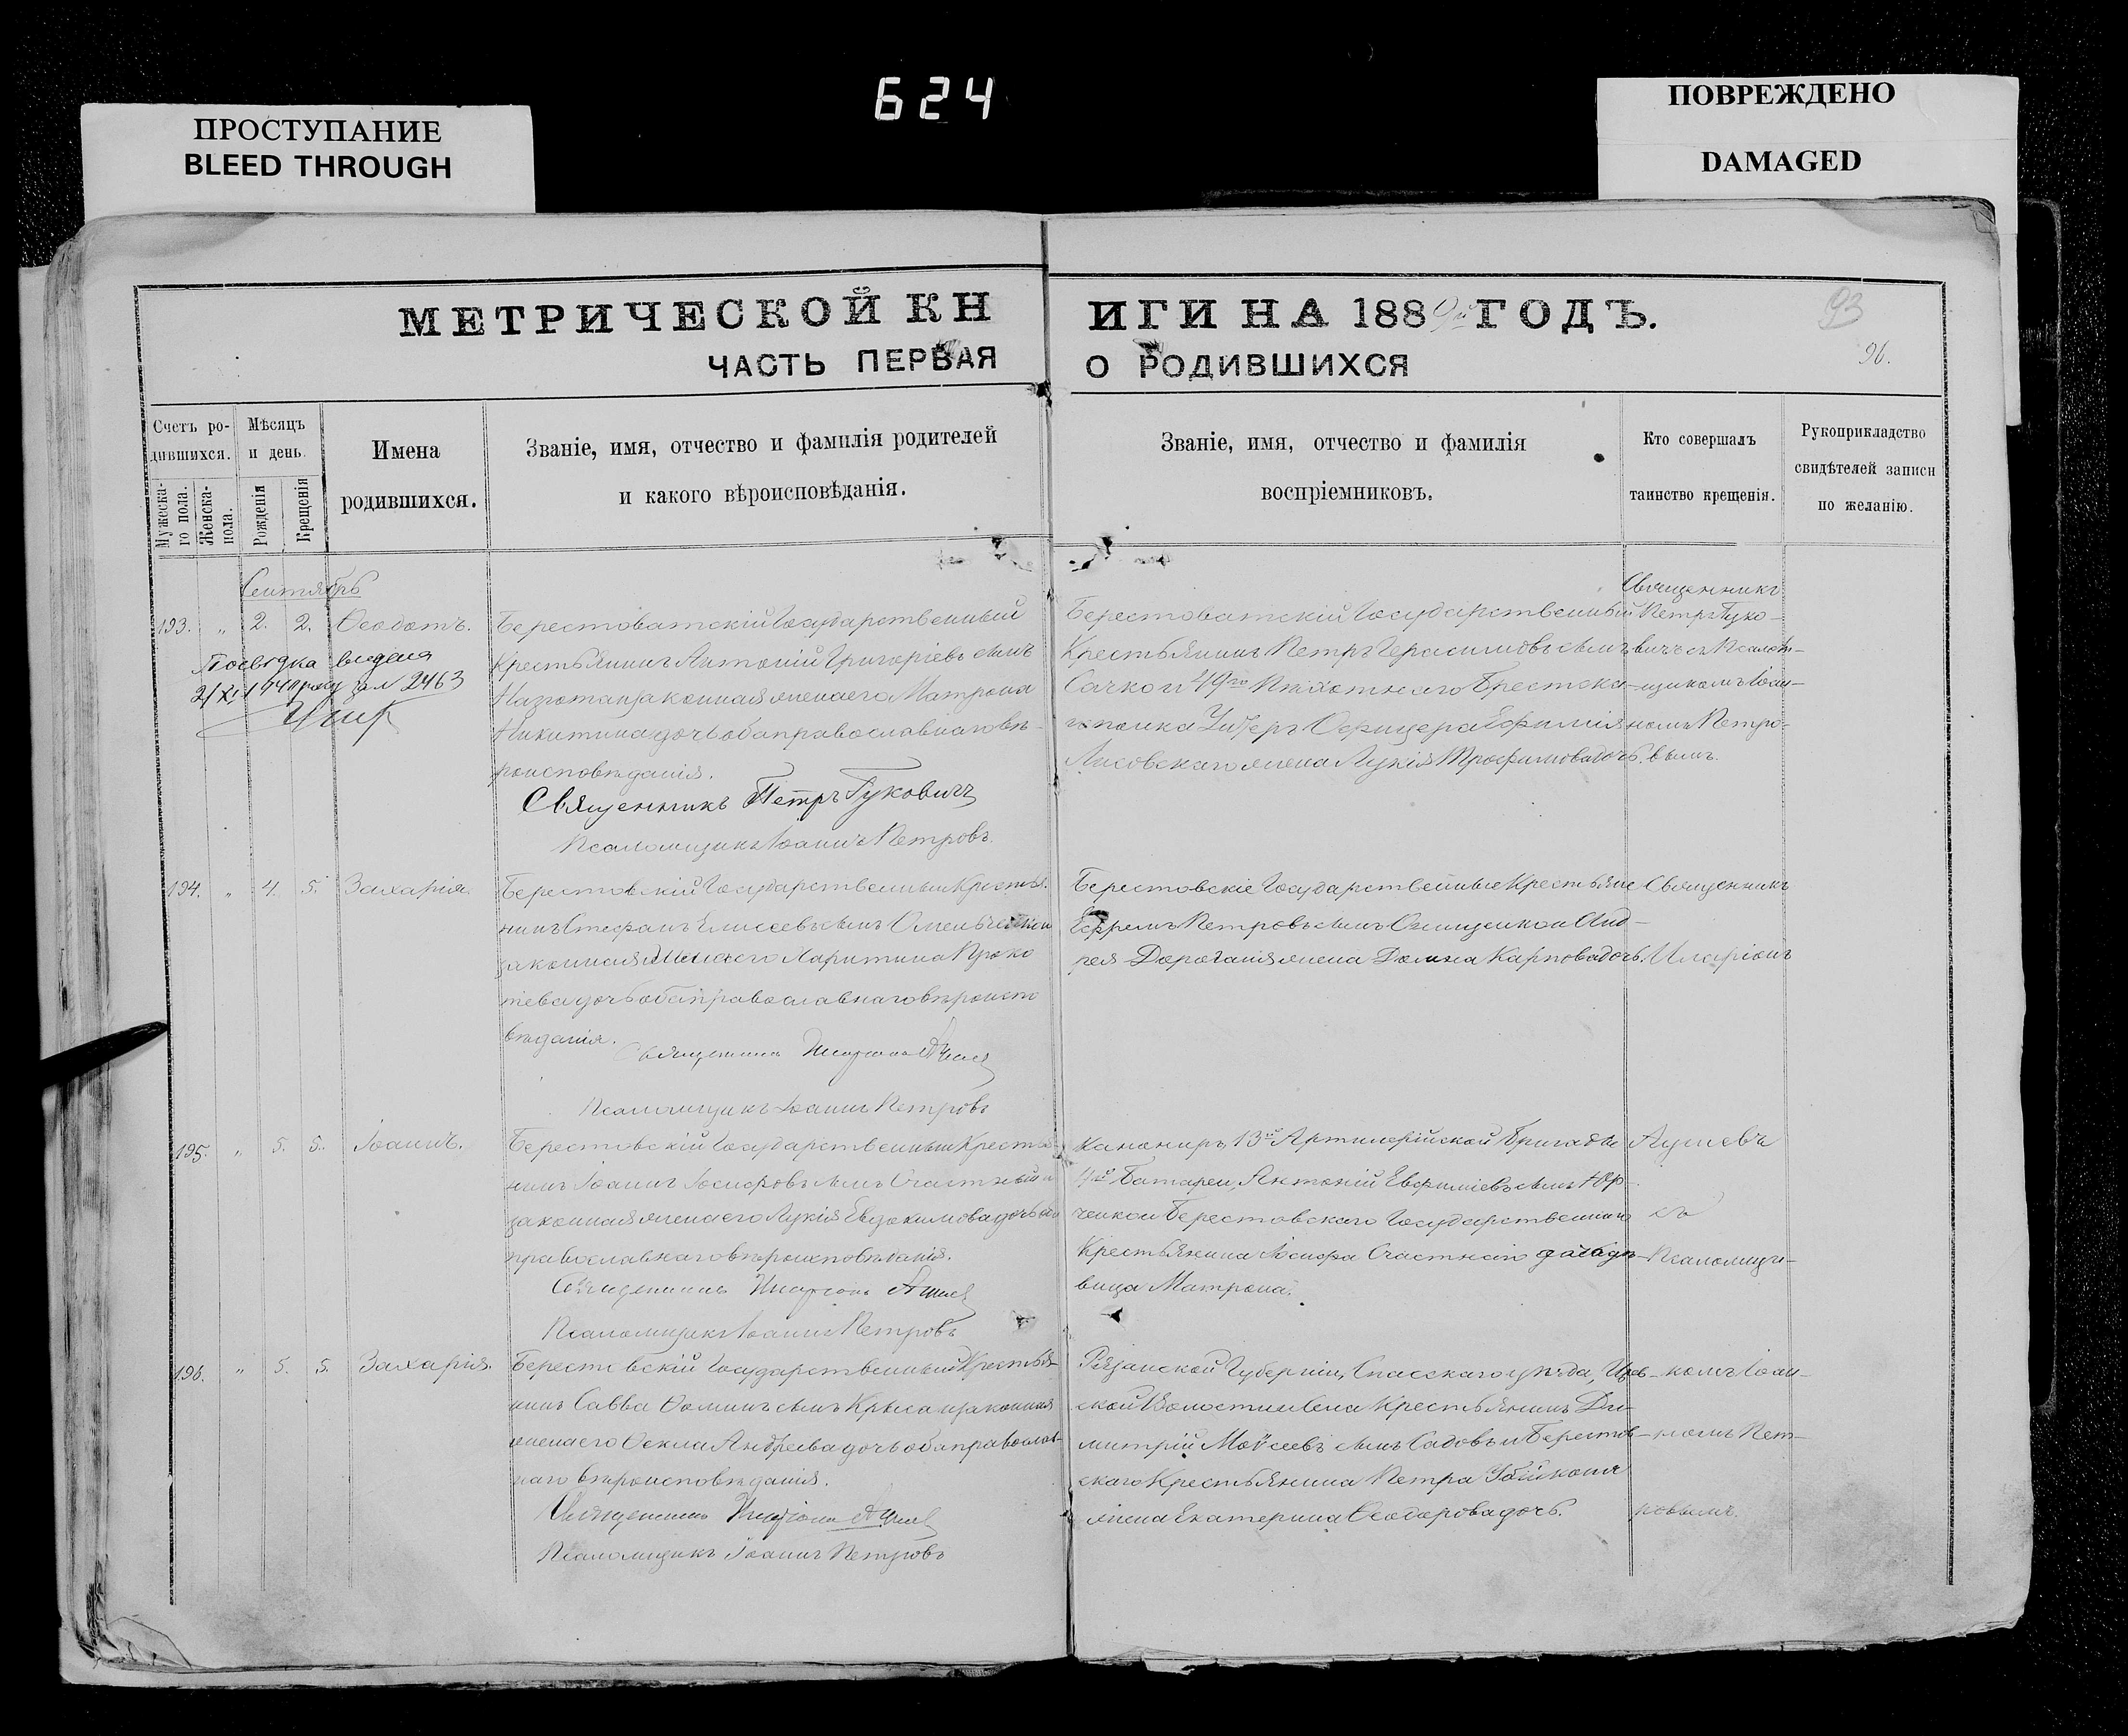 624
ПРОСТУПАНИЕ
BLEED THROUGH
ПОВРЕЖДЕНО
DAMAGED
МЕТРИЧЕСКОЙ КНИГИ НА 1889й ГОДЪ.
ЧАСТЬ ПЕРВАЯ О РОДИВШИХСЯ
93
96.
Счетъ ро-
дившихся.
Мужеска-
го пола.
Женска-
пола.
Мѣсяцъ
и день.
Рожденія
Крещенія
Имена
родившихся.
Званіе, имя, отчество и фамилія родителей
и какого вѣроисповѣданія.
Званіе, имя, отчество и фамилія
воспріемниковъ.
Кто совершалъ
таинство крещенія.
Рукоприкладство
свидѣтелей записи
по желанію.
Сентябрь
193. " 2. 2. Ѳеодотъ.
2463
Берестоватскій Государственный
Крестьянинъ Антоній Григоріевъ сынъ
законная жена его Матрона
Никитина дочь оба православнаго вѣ-
роисповѣданія.
Священникъ Петръ Гукович
Псаломщикъ Іоаннъ Петровъ.
Берестоватскій Государственный
Крестьянинъ Петръ Герасимовъ сынъ
Сачко и 49го Пѣхотнаго Брестска-
го полка Унтеръ Офицера Ефимія
Лисовскаго жена Лукія Трофимова дочь.
Священникъ
Петръ Гуко-
вичъ съ Псалом-
щикомъ Іоан-
номъ Петро-
вымъ.
194. " 4. 5. Захарія.
Берестовскій Государственный Крестья-
нинъ Стефанъ Елисеевъ сынъ
законная жена его Харитина Проко
піева дочь оба православнаго вѣроиспо
вѣданія.
Священникъ Иларіонъ
Псаломщикъ Іоаннъ Петровъ
Берестовскіе Государственные Крестьяне
Ефремъ Петровъ сынъ Онищенко и Анд-
рея жена Домна Карпова дочь.
Священникъ
Иларіонъ
195. " 5. 5. Іоаннъ.
Берестовскій Государственный Крестья-
нинъ Іоаннъ Іосифовъ сынъ Счастный и
законная жена его Лукія Евдокимова дочь оба
православнаго вѣроисповѣданія.
Священникъ Иларіонъ
Псаломщикъ Іоаннъ Петровъ
Канониръ 13й Артилерійской бригады
4й Батареи, Антоній Евфиміевъ сынъ Юр-
ченко и Берестовскаго Государственнаго
Крестьянина Іосифа Счастнаго дочь дѣ-
вица Матрона.
съ
Псаломщи-
196. " 5. 5. Захарія.
Берестовскій Государственный Крестья-
нинъ Савва Ѳоминъ сынъ Крыса и законная
жена его Ѳекла Андреева дочь оба православ-
наго вѣроисповѣданія.
Священникъ Иларіонъ
Псаломщикъ Іоаннъ Петровъ
Рязанской Губерніи, Спасскаго уѣзда,
ской Волости и Села Крестьянинъ Ди-
митрій Моѵсеевъ сынъ Садовъ и Берестов-
скаго Крестьянина Петра
жена Екатерина Ѳеодорова дочь.
комъ Іоан-
номъ Пет-
ровымъ.